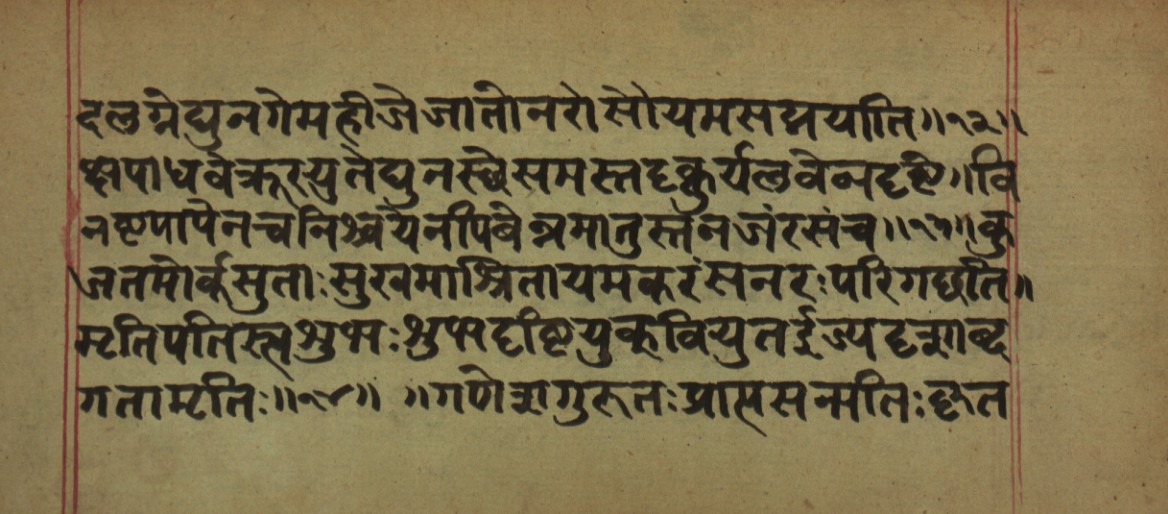 दलग्नेद्युनगेमहीजेजातोनरोसौयमसद्मयाति॥१२॥
क्षपाधवेक्रूरयुतेद्युनस्थेसमस्तदृक्कुर्यलवेनदृष्टे॥वि
नष्टपापेनचनिश्चयेनपिबेन्नमातुस्तनजंरसंच॥१३॥कु
जतमोर्कसुताःसुखमाश्रितायमकरंसनरःपरिगर्छति॥
मृतिपतिस्त्वशुभःशुभदृष्टियुक्वियुतईज्यदृक्शाब्द
गतामृतिः॥१४॥ ॥गणेशागुरूतःप्राप्तसन्मतिःकृत